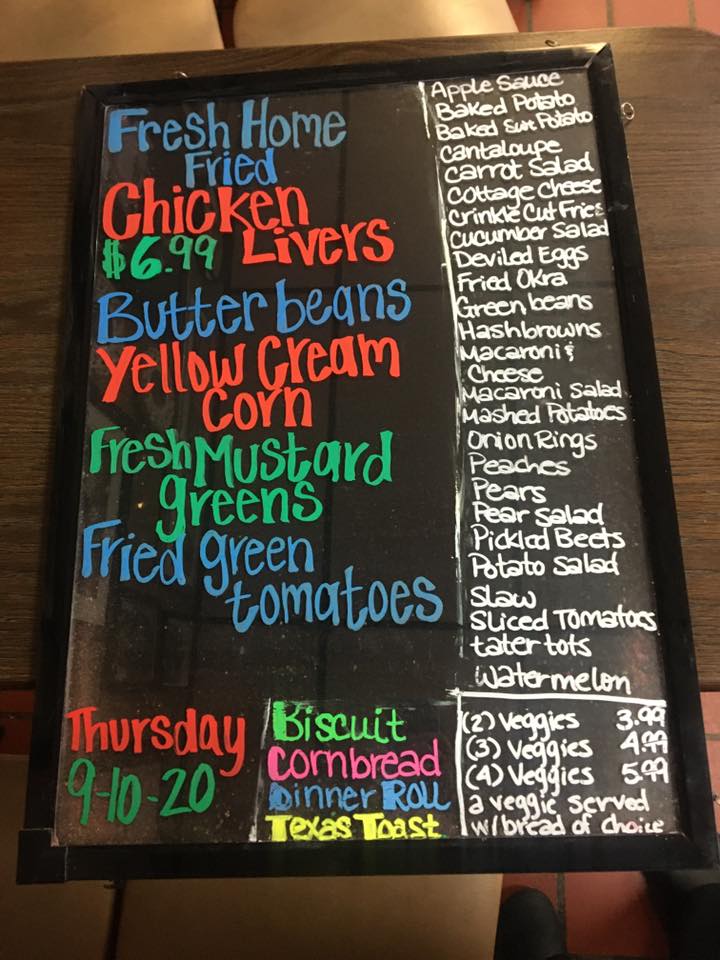 Fresh Home
Fried
Chicken
$6.99 Livers
Butter beans
Yellow Cream
Corn
Fresh Mustard
greens
Fried green
tomatoes
Apple Sauce
Baked Potato
Baked Swt Potato
Cantaloupe
Carrot Salad
Cottage Cheese
Crinkle Cut Fries
Cucumber Salad
Deviled Eggs
Fried Okra
Green beans
Hashbrowns
Macaroni &
Cheese
Macaroni Salad
Mashed Potatoes
Onion Rings
Peaches
Pears
Pear Salad
Pickled Beets
Potato Salad
Slaw
Sliced Tomatoes
tater tots
Watermelon
Thursday
9-10-20
Biscuit
Cornbread
Dinner Roll
Texas Toast
(2) Veggies 3.99
(3) Veggies 4.99
(4) Veggies 5.99
a veggie served
w/ bread of choice